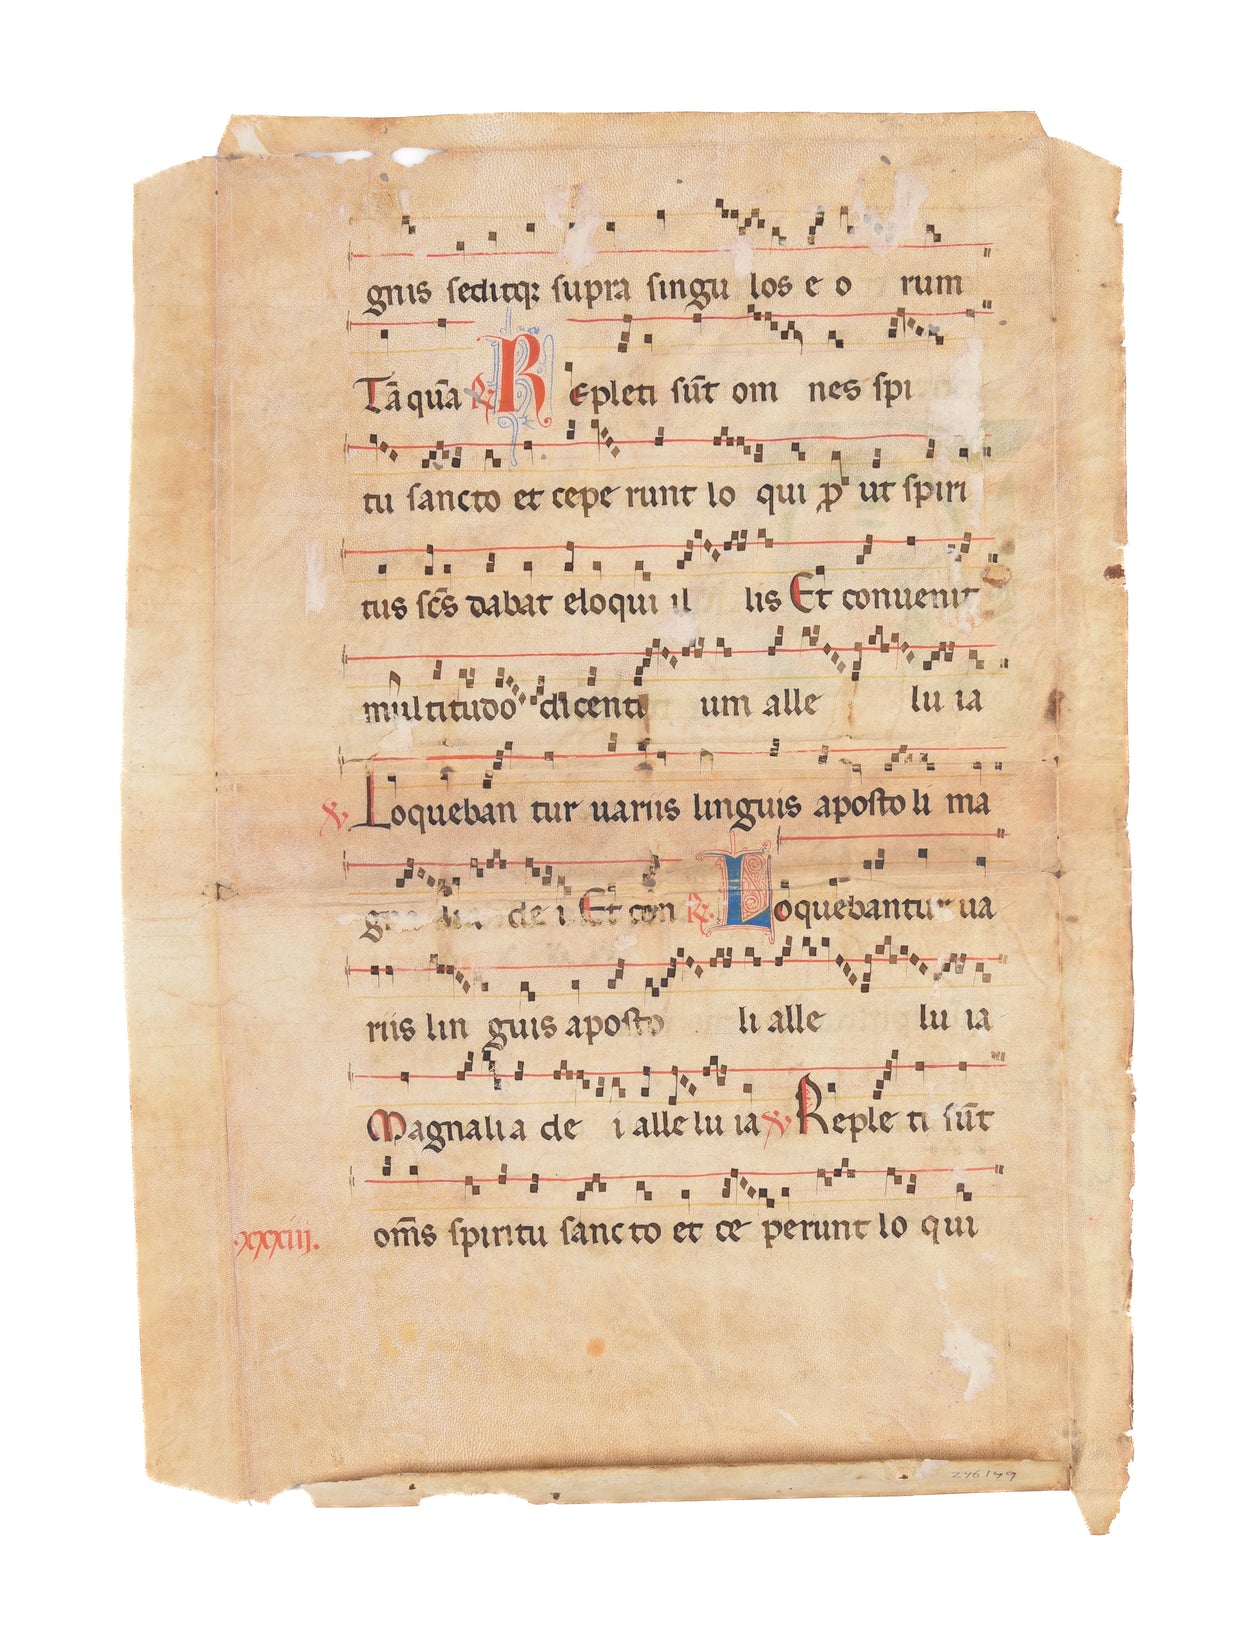 gnis seditq; supra singu los e o rum
Tā quā ℟ Repleti sūt om nes spi
tu sancto et cepe runt lo qui p ut spiri
tus scs̄ dabat eloqui il lis Et conuenit
multitudo dicenti um alle lu ia
℣ Loqueban tur uariis linguis aposto li ma
de i Et con ℟ Loquebantur ua
riis lin guis aposto li alle lu ia
Magnalia de i alle lu ia ℣ Reple ti sūt
om̄s spiritu sanc to et ce perunt lo qui
.xxxiii.
276149